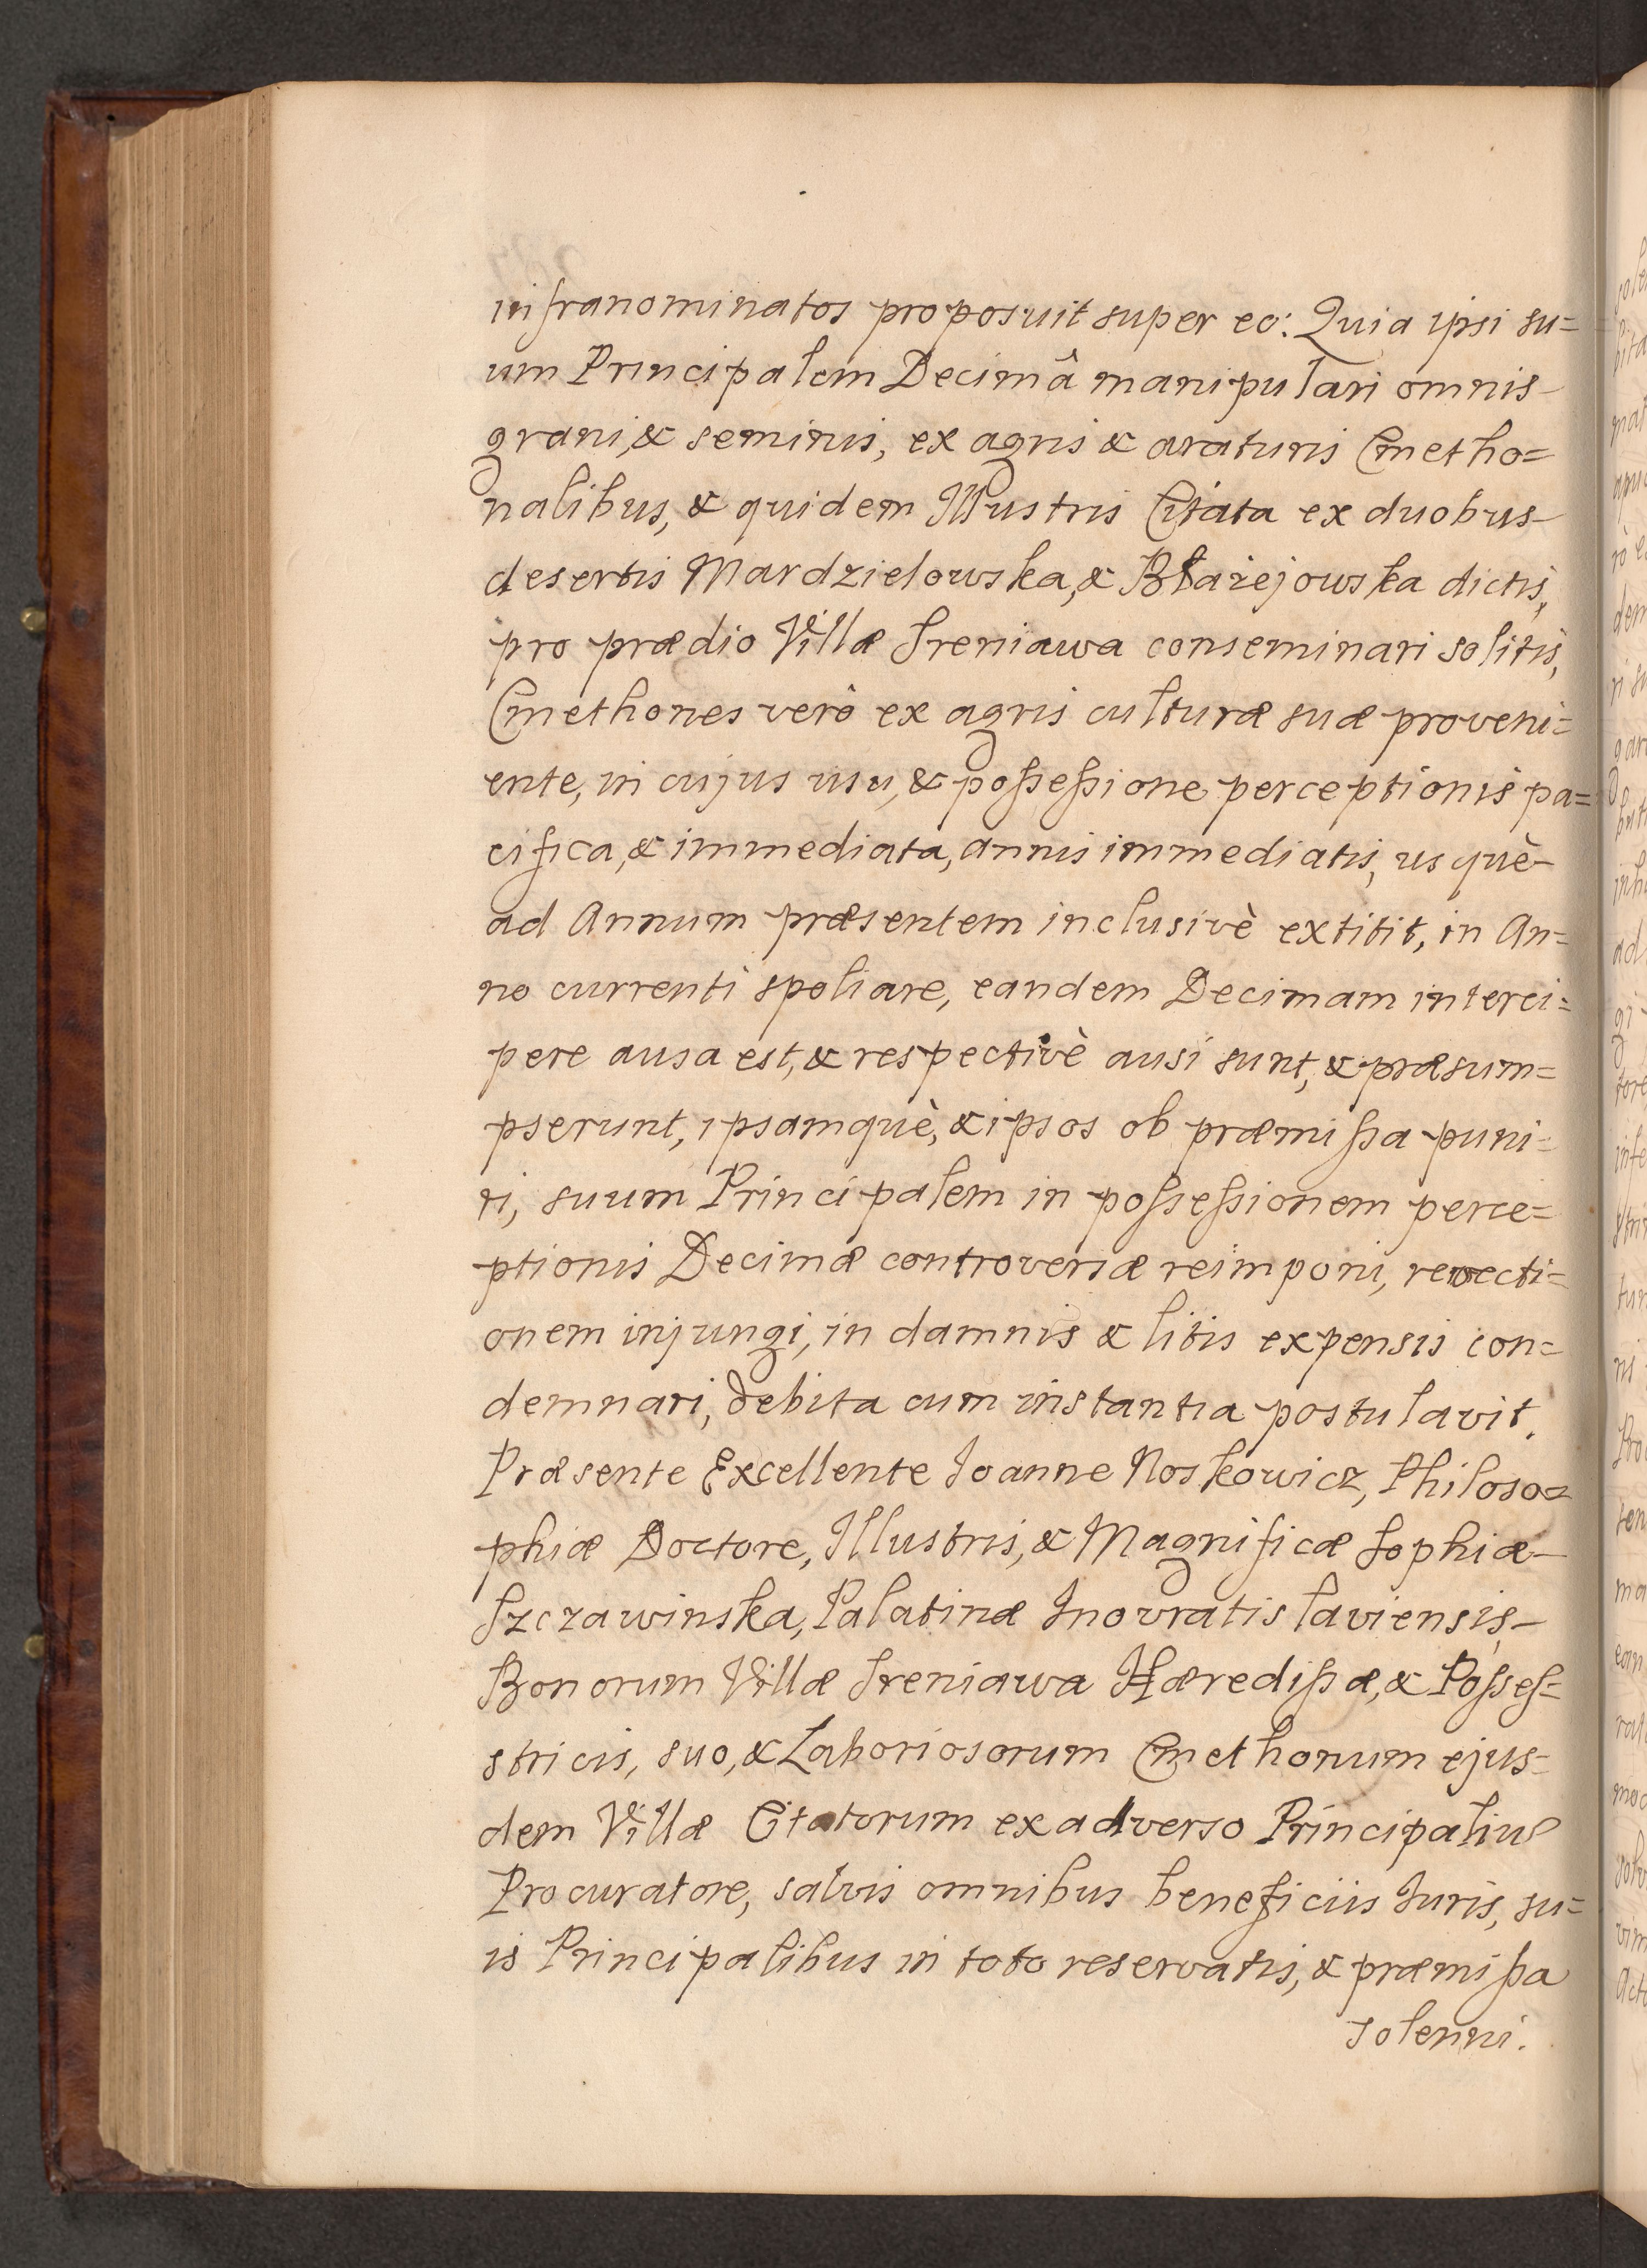 infranominatos proposuit super eo: Quia ipsi su=
um Principalem Decimâ manipulari omnis
grani, & seminis, ex agris & araturis Cmetho=
nalibus, & quidem Illustris Citata ex duobus
desertis Mardzielowska, & Błażejowska dictis,
pro prædio Villæ Sreniawa conseminari solitis,
Cmethones verò ex agris culturæ suæ proveni=
ente, in cujus usu, & possessione perceptionis pa=
cifica, & immediata, annis immediatis, usquè
ad Annum præsentem inclusivè extitit, in An=
no currenti spoliare, eandem Decimam interci=
pere ausa est, & respectivè ausi sunt, & præsum=
pserunt, ipsamquè, & ipsos ob præmissa puni=
ri, suum Principalem in possessionem perce=
ptionis Decimæ controversæ reimponi, revecti=
onem injungi, in damnis & litis expensis con=
demnari, debita cum instantia postulavit.
Præsente Excellente Joanne Noskowicz, Philoso=
phiæ Doctore, Illustris, & Magnificæ Sophiæ
Szczawinska, Palatinæ Inovratislaviensis,
Bonorum Villæ Sreniawa Hæredissæ, & Posses=
stricis, suo, & Laboriosorum Cmethonum ejus=
dem Villæ Citatorum ex adverso Principaliu
Procuratore, salvis omnibus beneficiis Juris, su=
is Principalibus in toto reservatis, & præmissa
solenni.